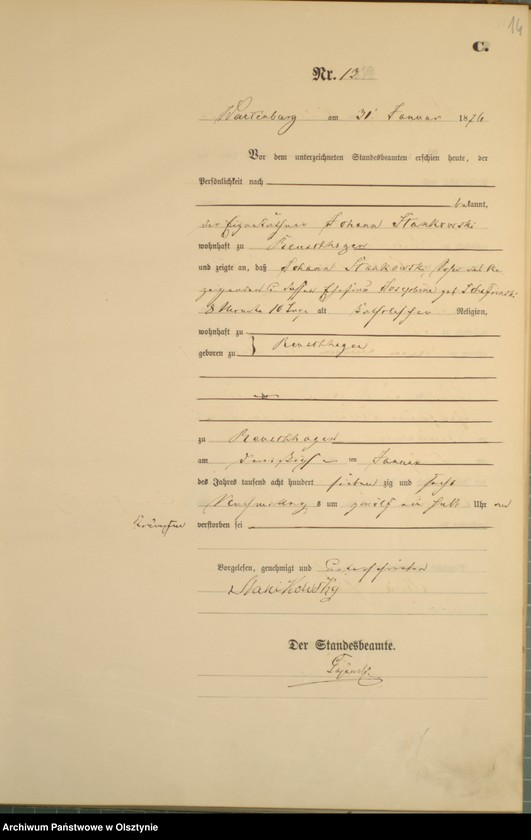 14
C.
Nr. 13
Wartenburg am 31 Januar 1876
Vor dem unterzeichneten Standesbeamten erschien heute, der
Persönlichkeit nach
bekannt,
der Eigenkäthner Johann Stankowski
wohnhaft zu
und zeigte an, daß Johann Stankowski, Sohn des
Ehefrau Josephine geb.
8 Monate 10 Tage alt katholischer Religion,
wohnhaft zu
geboren zu
zu
am dreißigsten Januar
des Jahres tausend acht hundert sieben zig und sechs
Nachmittags um zwölf ein halb Uhr an
Krämpfen verstorben sei
Vorgelesen, genehmigt und unterschrieben
Der Standesbeamte.
Archiwum Państwowe w Olsztynie